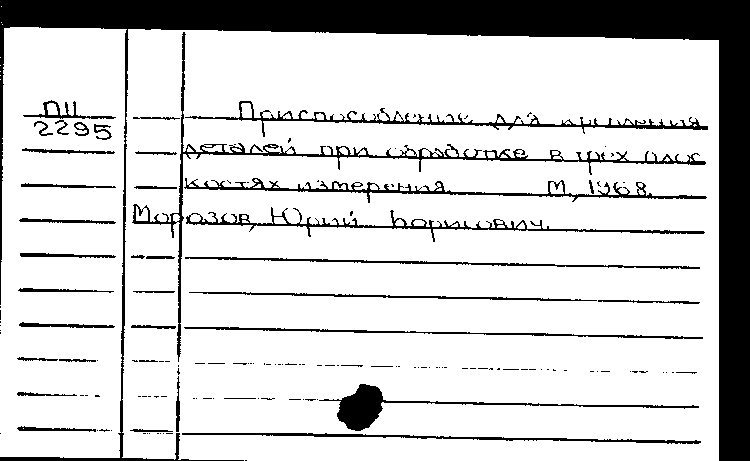 П11
2295
Приспособление для крепления
деталей при обработке в трёх плос
костях измерения. М, 1968.
Морозов, Юрий Борисович.